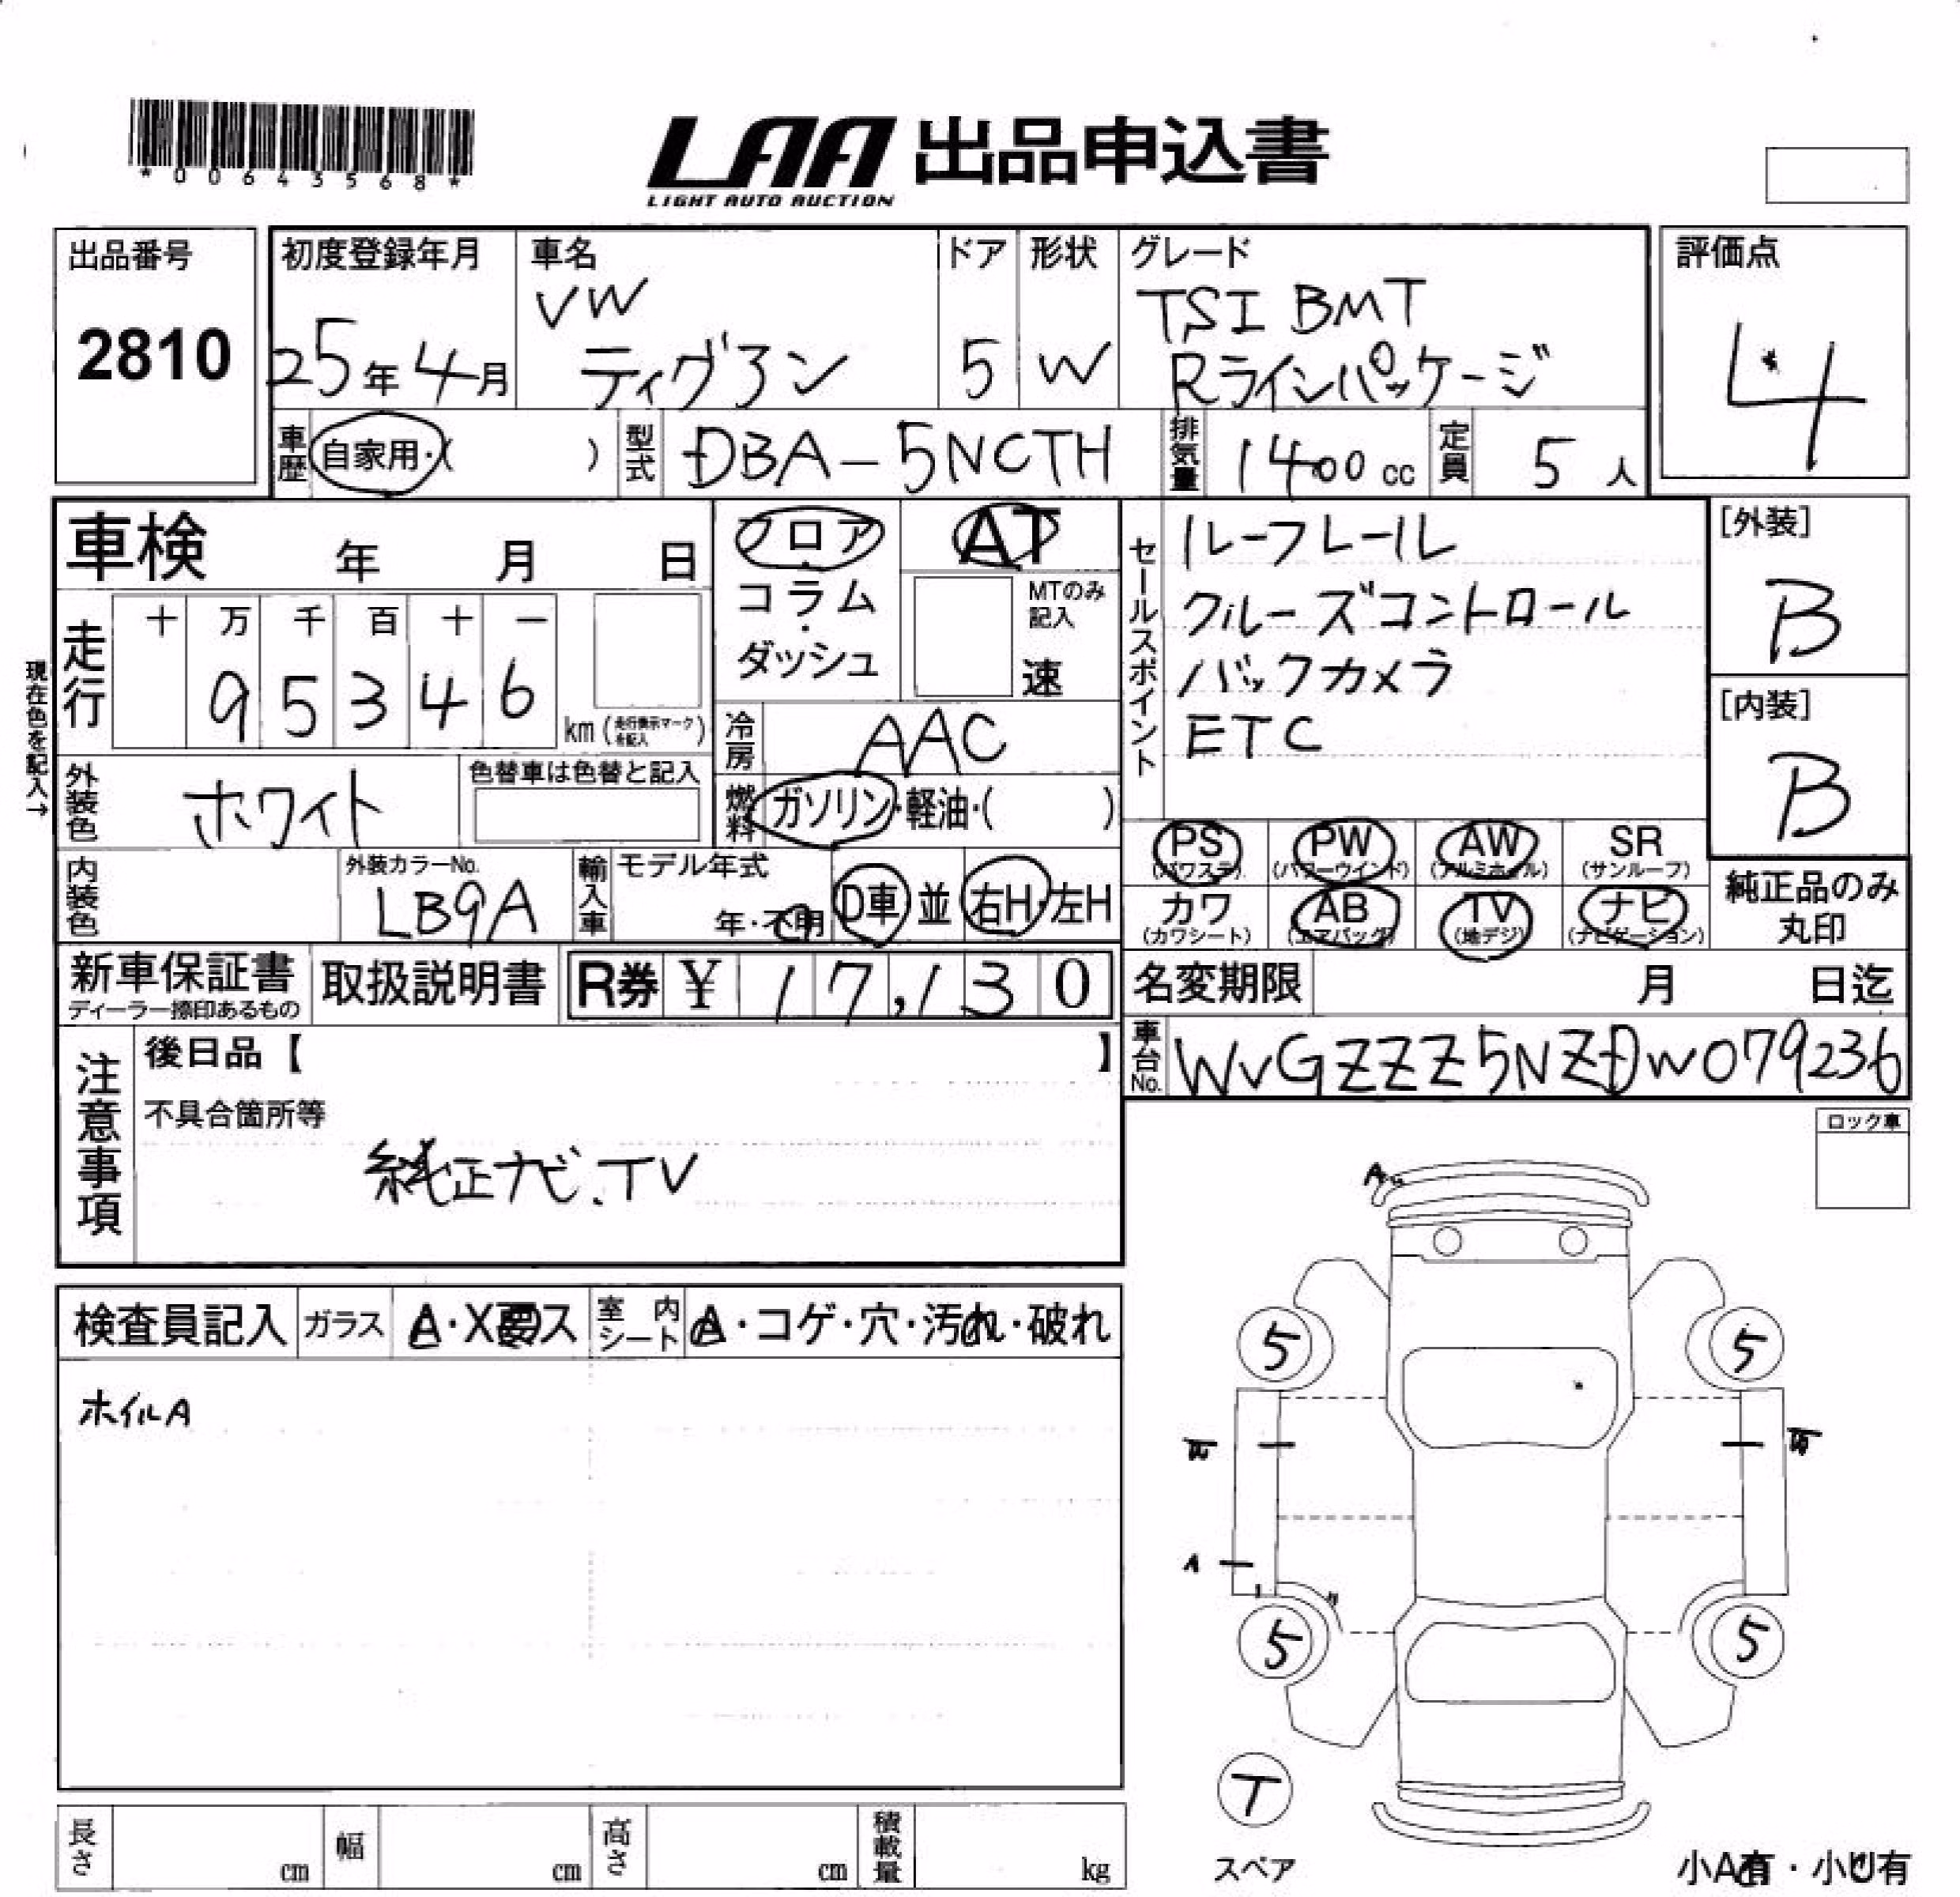 *00643568*
LAA 出品申込書
LIGHT AUTO AUCTION
出品番号
2810
初度登録年月
25年4月
車名
VW
ティグラン
ドア
5
形状
W
グレード
TSI BMT
Rラインパッケージ
評価点
4
車歴
自家用・( )
型式
DBA-5NCTH
排気量
1400 cc
定員
5 人
車検 年 月 日
フロア
・
コラム
・
ダッシュ
AT
MTのみ
記入
速
セールスポイント
ルーフレール
クルーズコントロール
バックカメラ
ETC
[外装]
B
[内装]
B
現在色を記入→
走行
十 万 千 百 十 一
9 5 3 4 6
km(走行換示マーク を記入)
冷房
AAC
外装色
ホワイト
色替車は色替と記入
燃料
ガソリン・軽油・( )
PS
(パワステ)
PW
(パワーウインド)
AW
(アルミホイル)
SR
(サンルーフ)
カワ
(カワシート)
AB
(エアバッグ)
TV
(地デジ)
ナビ
(ナビゲーション)
純正品のみ
丸印
内装色
外装カラーNo.
LB9A
輸入車
モデル年式
年・不明
D車 並
右H・左H
新車保証書
ディーラー捺印あるもの
取扱説明書
R券 ¥ 17,130
名変期限 月 日迄
車台No.
WVGZZZ5NZDW079236
注意事項
後日品【 】
不具合箇所等
純正ナビ.TV
ロック車
検査員記入
ガラス
A・X要ス
室内
シート
A・コゲ・穴・汚れ・破れ
ホイルA
A
5
5
A
5
5
T
スペア
長さ cm
幅 cm
高さ cm
積載量 kg
小A有・小U有